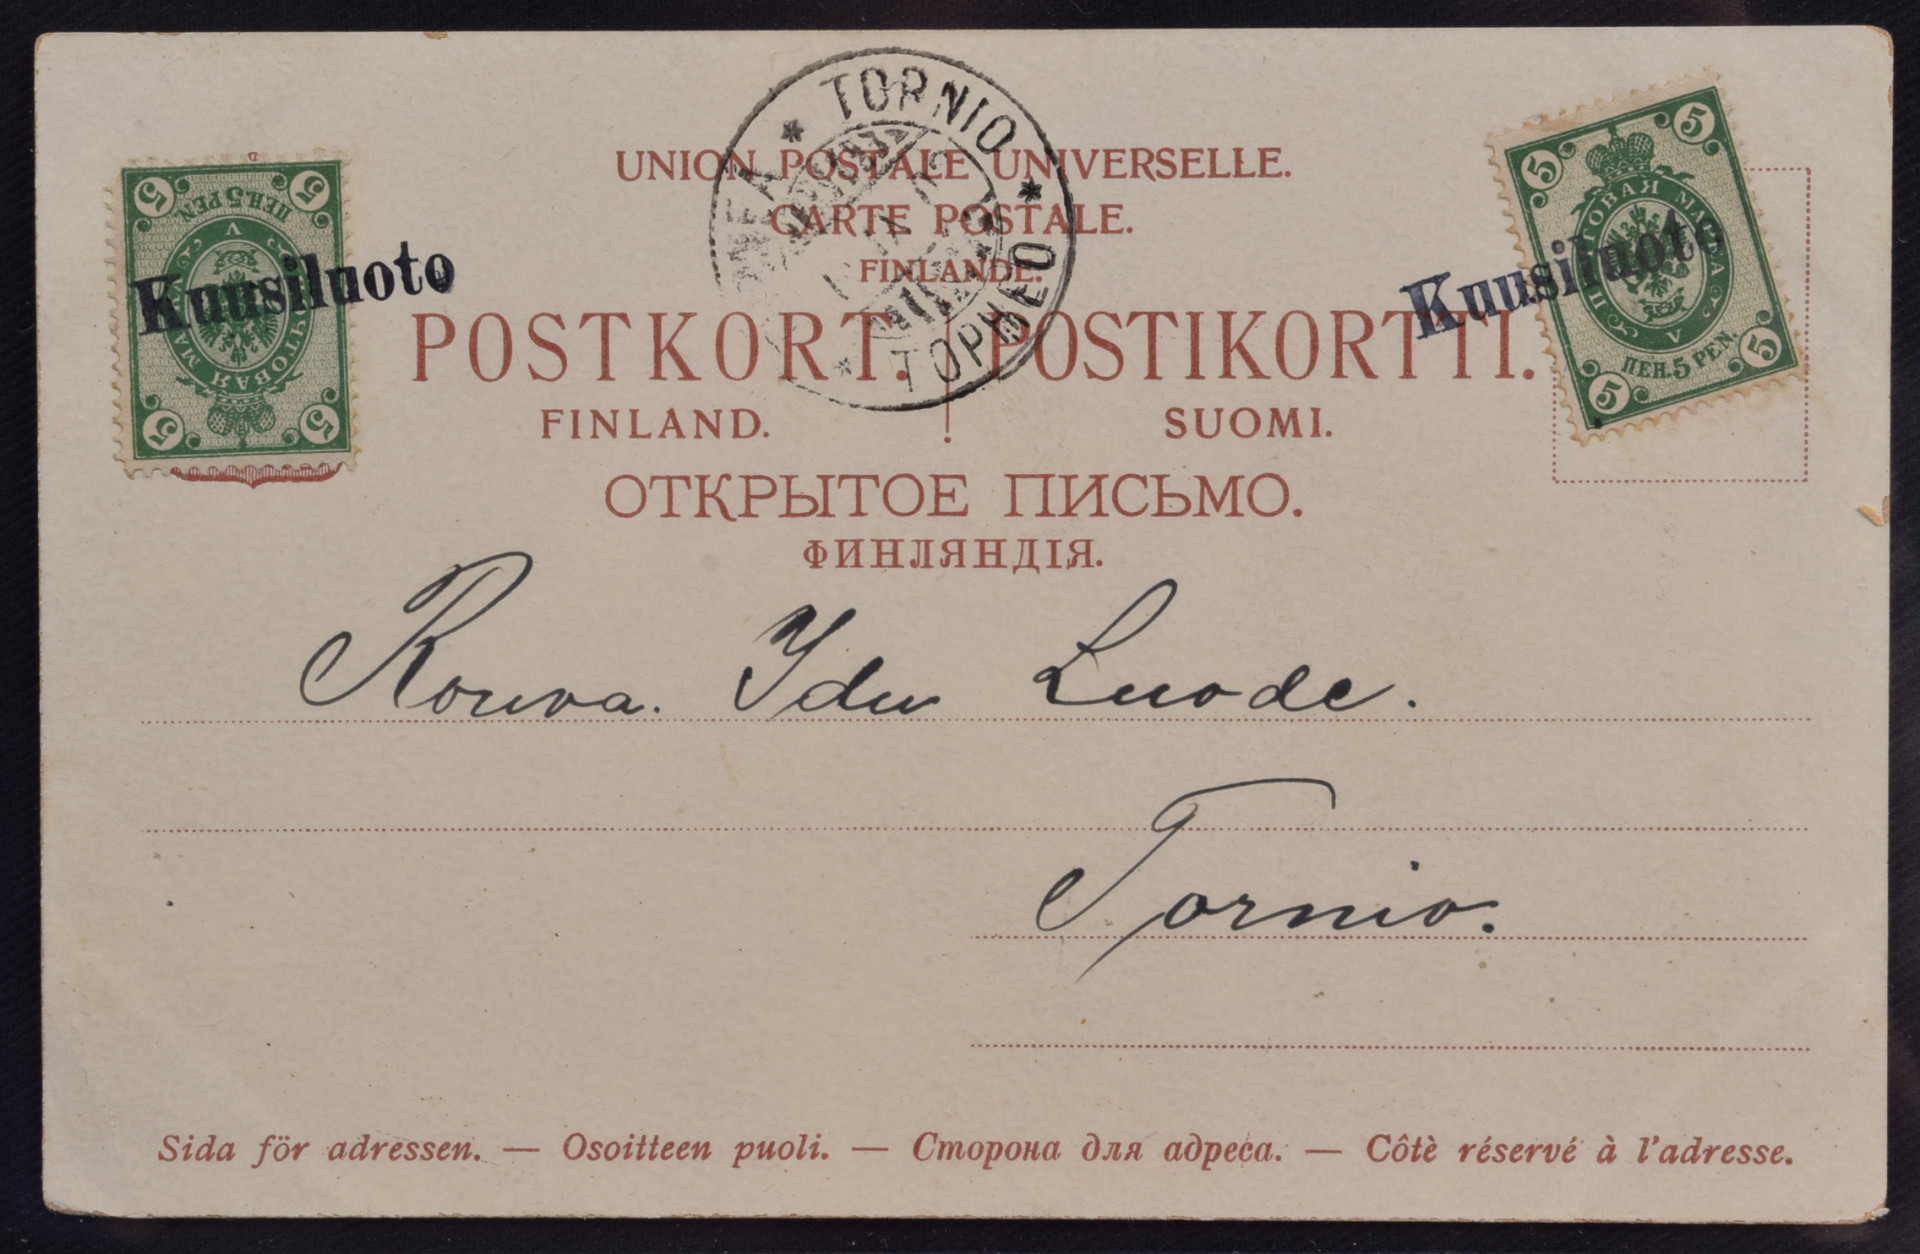 TORNIO
ТОРНЕО
UNION POSTALE UNIVERSELLE.
CARTE POSTALE.
FINLANDE.
5 5
ПЕН. 5 PEN.
ПОЧТОВАЯ МАРКА
V
5 5
Kuusiluoto
5 5
ПОЧТОВАЯ МАРКА
V
ПЕН. 5 PEN.
5 5
Kuusiluoto
POSTKORT. POSTIKORTTI.
FINLAND. SUOMI.
ОТКРЫТОЕ ПИСЬМО.
ФИНЛЯНДІЯ.
Rouva. Ida Luode.
Tornio.
Sida för adressen. — Osoitteen puoli. — Сторона для адреса. — Côtè réservé à l'adresse.